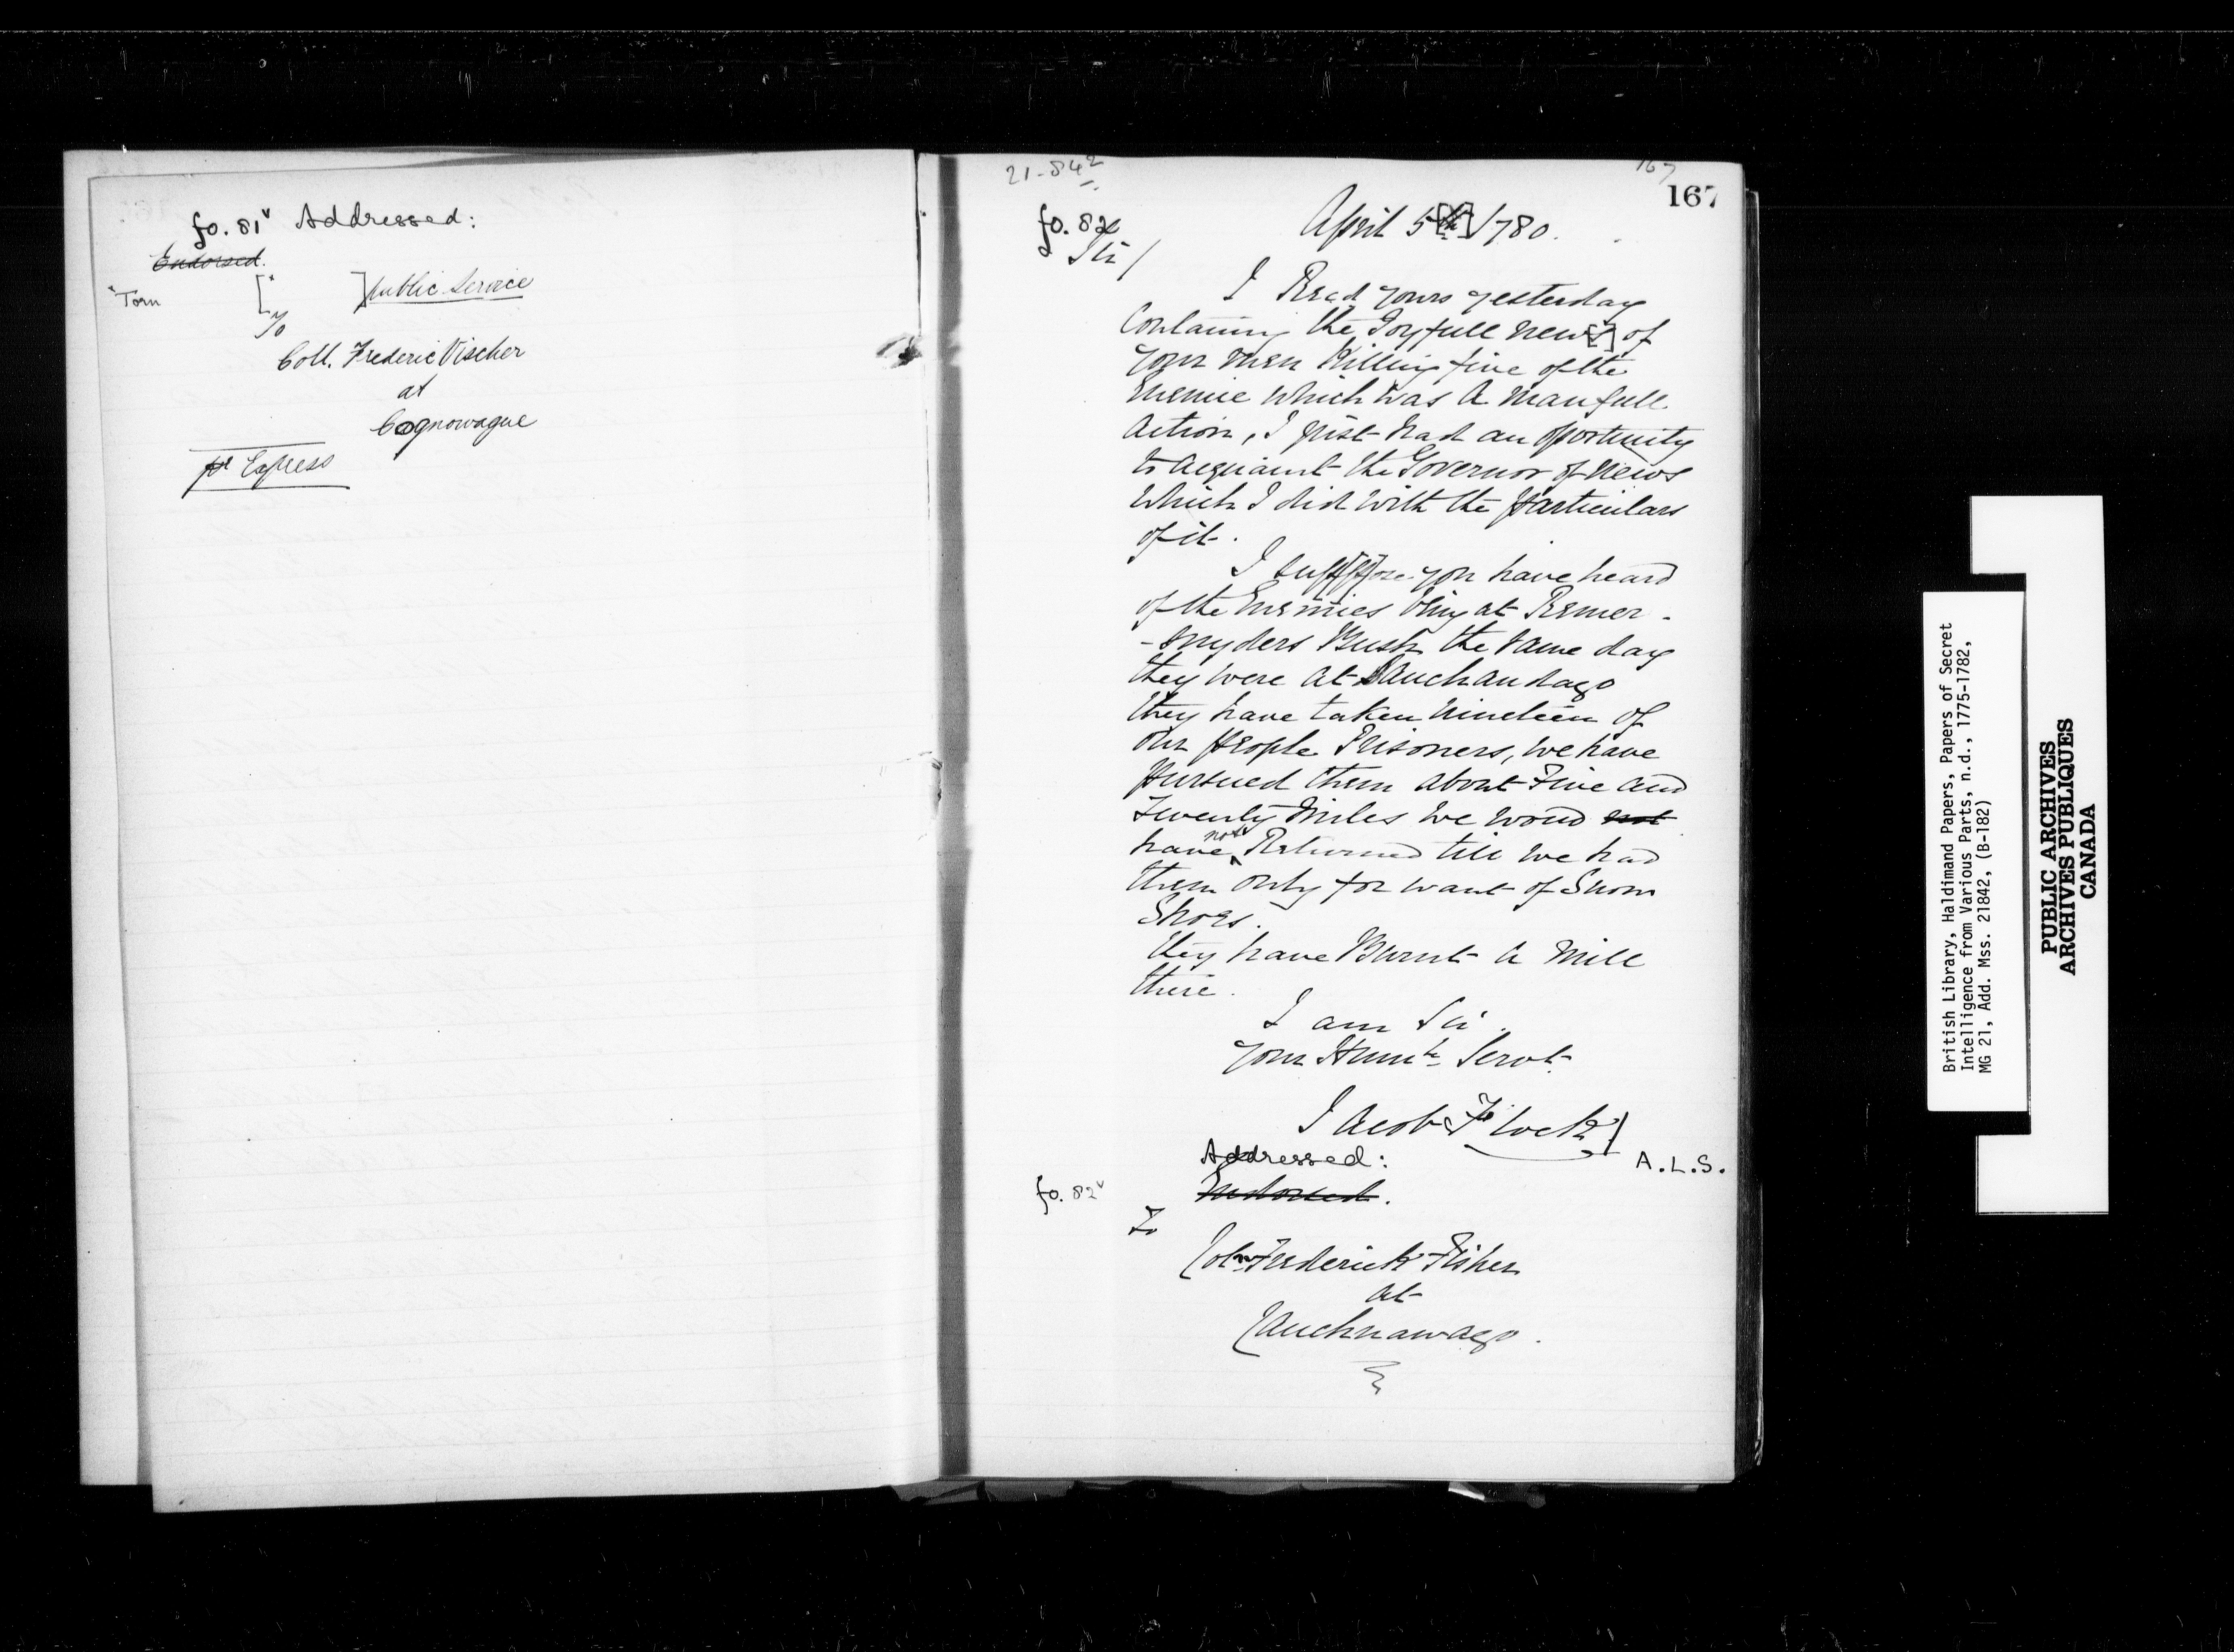 fo. 81v Addressed:
Endorsed.
*Torn [* ] Public Service
To
Coll. Frederic Vischer
at
Cognowague
pr Express
21-842
167
167
fo. 82
April 5[th] 1780.
Sir/
I Recd yours yesterday
Containing the Joyfull new[s] of
your men Killing five of the
Enemie which was A Manfull
Action, I just had an oportunity
to acquaint the Governor of News
which I did with the Particulars
of it.
I sup[p]ose you have heard
of the Enemies being at Remer-
-snyders Bush the same day
they were at Sauchandago
they have taken Nineteen of
our People Prisoners, we have
Pursued them about Five and
Twenty Miles we woud not
have not Returned till we had
them only for want of Snow
Shoes.
they have Burnt A Mill
there.
I am Sir.
your Humle Servt
Jacob Klock
Addressed:
A.L.S.
fo. 82v
Endorsed.
To
Coln Frederick Fisher
at
Cauchnawago.
British Library, Haldimand Papers, Papers of Secret
Intelligence from Various Parts, n.d., 1775-1782,
MG 21, Add. Mss. 21842, (B-182)
PUBLIC ARCHIVES
ARCHIVES PUBLIQUES
CANADA